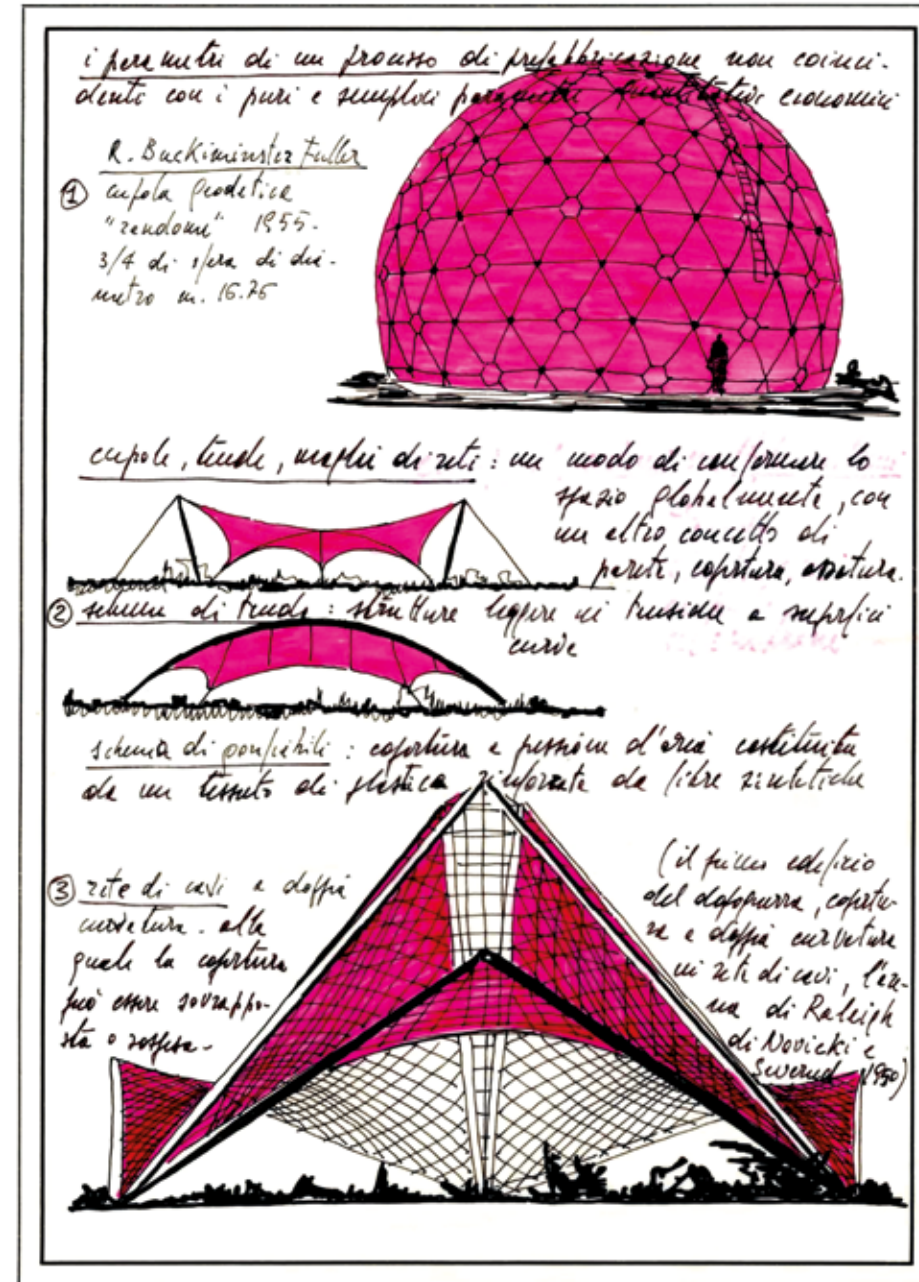 i parametri di un processo di prefabbricazione non coinci-
denti con i puri e semplici parametri quantitativi economici
R. Buckiminster Fuller
① cupola geodetica
"random" 1955-
3/4 di sfera di dia-
metro m. 16.76
cupole, tende, maglie di reti: un modo di conformare lo
spazio globalmente, con
un altro concetto di
parete, copertura, ossatura.
② schema di tenda: strutture leggere in tensione a superfici
curve
schema di gonfiabili: copertura a pressione d'aria costituita
da un tessuto di plastica rinforzata da fibre sintetiche
③ rete di cavi a doppia
curvatura. alla
quale la copertura
può essere sovrappo-
sta o sospesa-
(il primo edificio
del dopoguerra, copertu-
ra a doppia curvatura
in rete di cavi, l'are-
na di Raleigh
di Novicki e
Severud 1950)